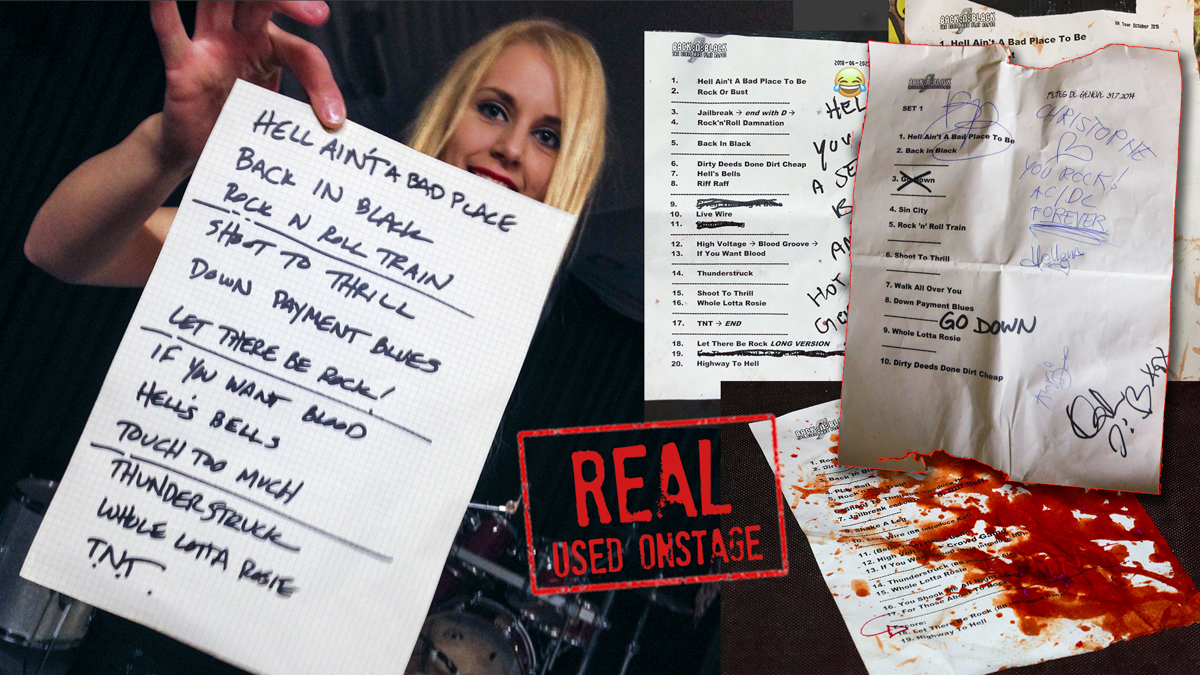 HELL AIN'T A BAD PLACE
BACK IN BLACK
ROCK N ROLL TRAIN
SHOOT TO THRILL
DOWN PAYMENT BLUES
LET THERE BE ROCK!
IF YOU WANT BLOOD
HELL'S BELLS
TOUCH TOO MUCH
THUNDERSTRUCK
WHOLE LOTTA ROSIE
T.N.T
BACK:N:BLACK
2018-06-
1. Hell Ain't A Bad Place To Be
2. Rock Or Bust
3. Jailbreak → end with D →
4. Rock'n'Roll Damnation
5. Back In Black
6. Dirty Deeds Done Dirt Cheap
7. Hell's Bells
8. Riff Raff
9.
10. Live Wire
11.
12. High Voltage → Blood Groove →
13. If You Want Blood
14. Thunderstruck
15. Shoot To Thrill
16. Whole Lotta Rosie
17. TNT → END
18. Let There Be Rock LONG VERSION
19.
20. Highway To Hell
HEL
YOU
A SE
B
AN
HOT
GE
BACK:N:BLACK
UK Tour October 2016
1. Hell Ain't A Bad Place To Be
BACK:N:BLACK
FETES DE GENEVE 31.7.2014
SET 1
1. Hell Ain't A Bad Place To Be
2. Back in Black
3. Go Down
4. Sin City
5. Rock 'n' Roll Train
6. Shoot To Thrill
7. Walk All Over You
8. Down Payment Blues
GO DOWN
9. Whole Lotta Rosie
10. Dirty Deeds Done Dirt Cheap
CHRISTOPHE
YOU ROCK!
AC/DC
FOREVER
BACK:N:BLACK
1. Rock
2. Dirty
3. Back In Bl
4. Play Ball
5. Rock'n
6. Shoot To Thrill
7. Jailbreak
8. Shake A Leg
10. Live Wire
11.
12. High Vo
13. If You W
14. Thunderstruck
15. Whole Lotta Rosie
16. You Shook Me All Night
17. For Those About To
Encore:
18. Let There Be Rock
19. Highway To Hell
REAL
USED ONSTAGE